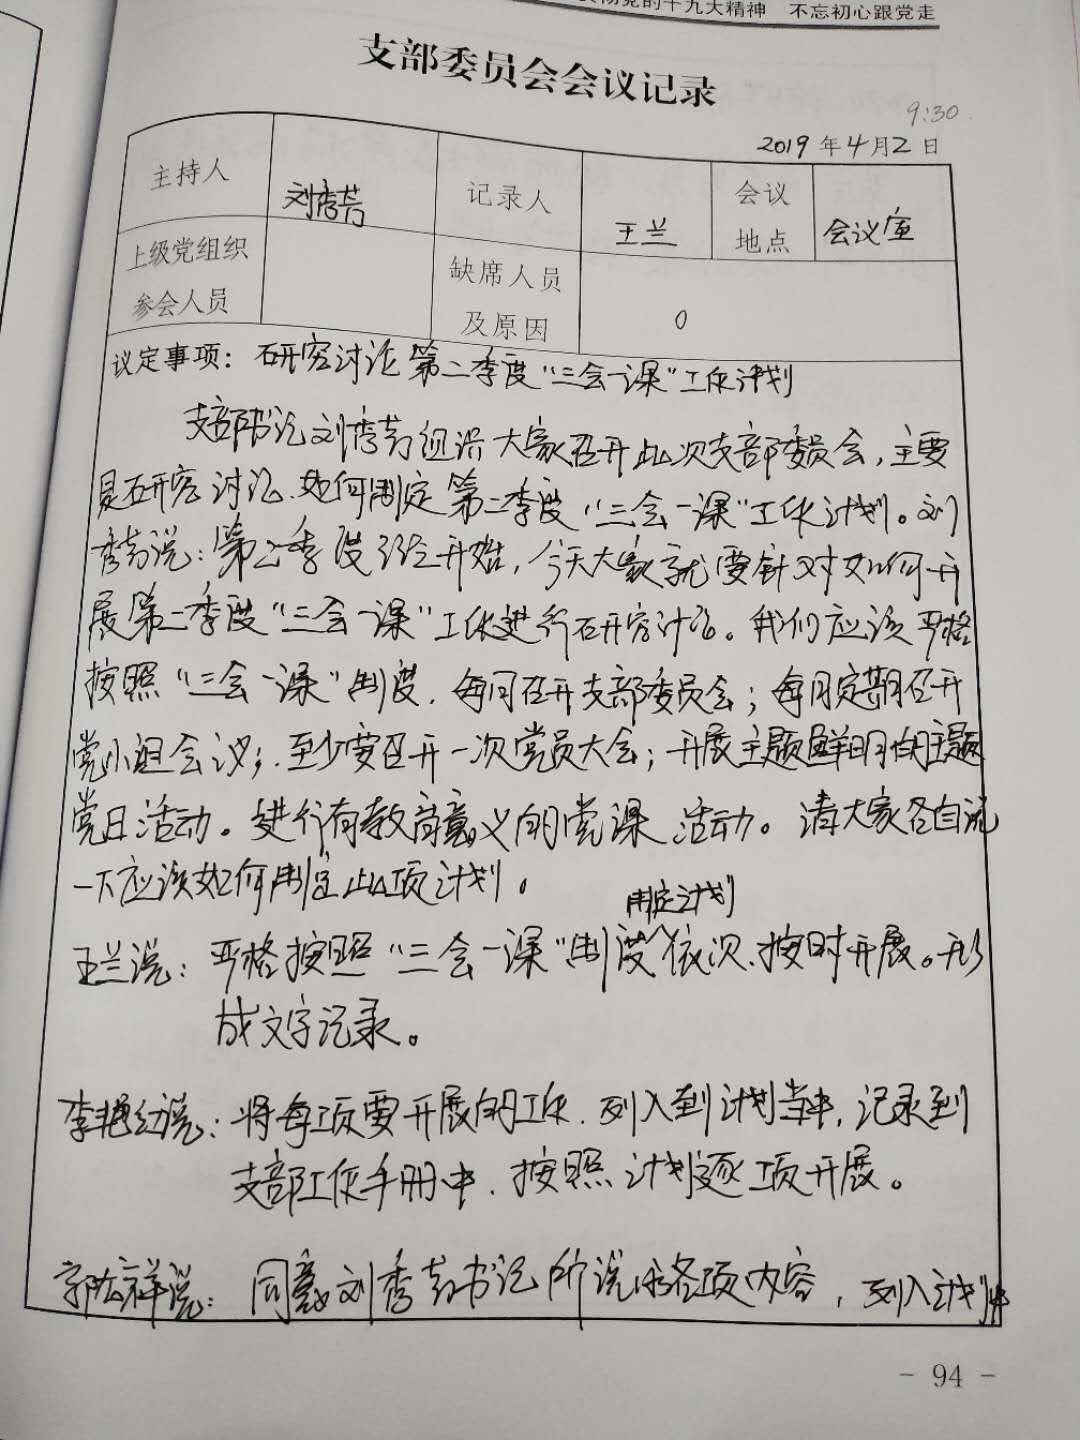 党的十九大精神 不忘初心跟党走
支部委员会会议记录
9:30
2019年4月2日
主持人 刘秀芳 记录人 王兰 会议地点 会议室
上级党组织参会人员 缺席人员及原因 0
议定事项：研究讨论第二季度“三会一课”工作计划
支部书记刘秀芳组织大家召开此次支部委员会，主要
是研究讨论、如何制定第二季度“三会一课”工作计划。刘
秀芳说：第二季度已经开始，今天大家就要针对如何开
展第二季度“三会一课”工作进行研究讨论。我们应该严格
按照“三会一课”制度，每月召开支部委员会；每月定期召开
党小组会议；至少要召开一次党员大会；开展主题鲜明的主题
党日活动。进行有教育意义的党课活动。请大家各自说
一下应该如何制定此项计划。
制定计划
王兰说：严格按照“三会一课”制度依次、按时开展。形
成文字记录。
李艳红说：将每项要开展的工作，列入到计划当中，记录到
支部工作手册中，按照计划逐项开展。
郭宏祥说：同意刘秀芳书记所说的各项内容，列入计划中
- 94 -